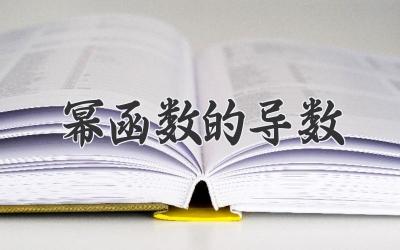 幂函数的导数